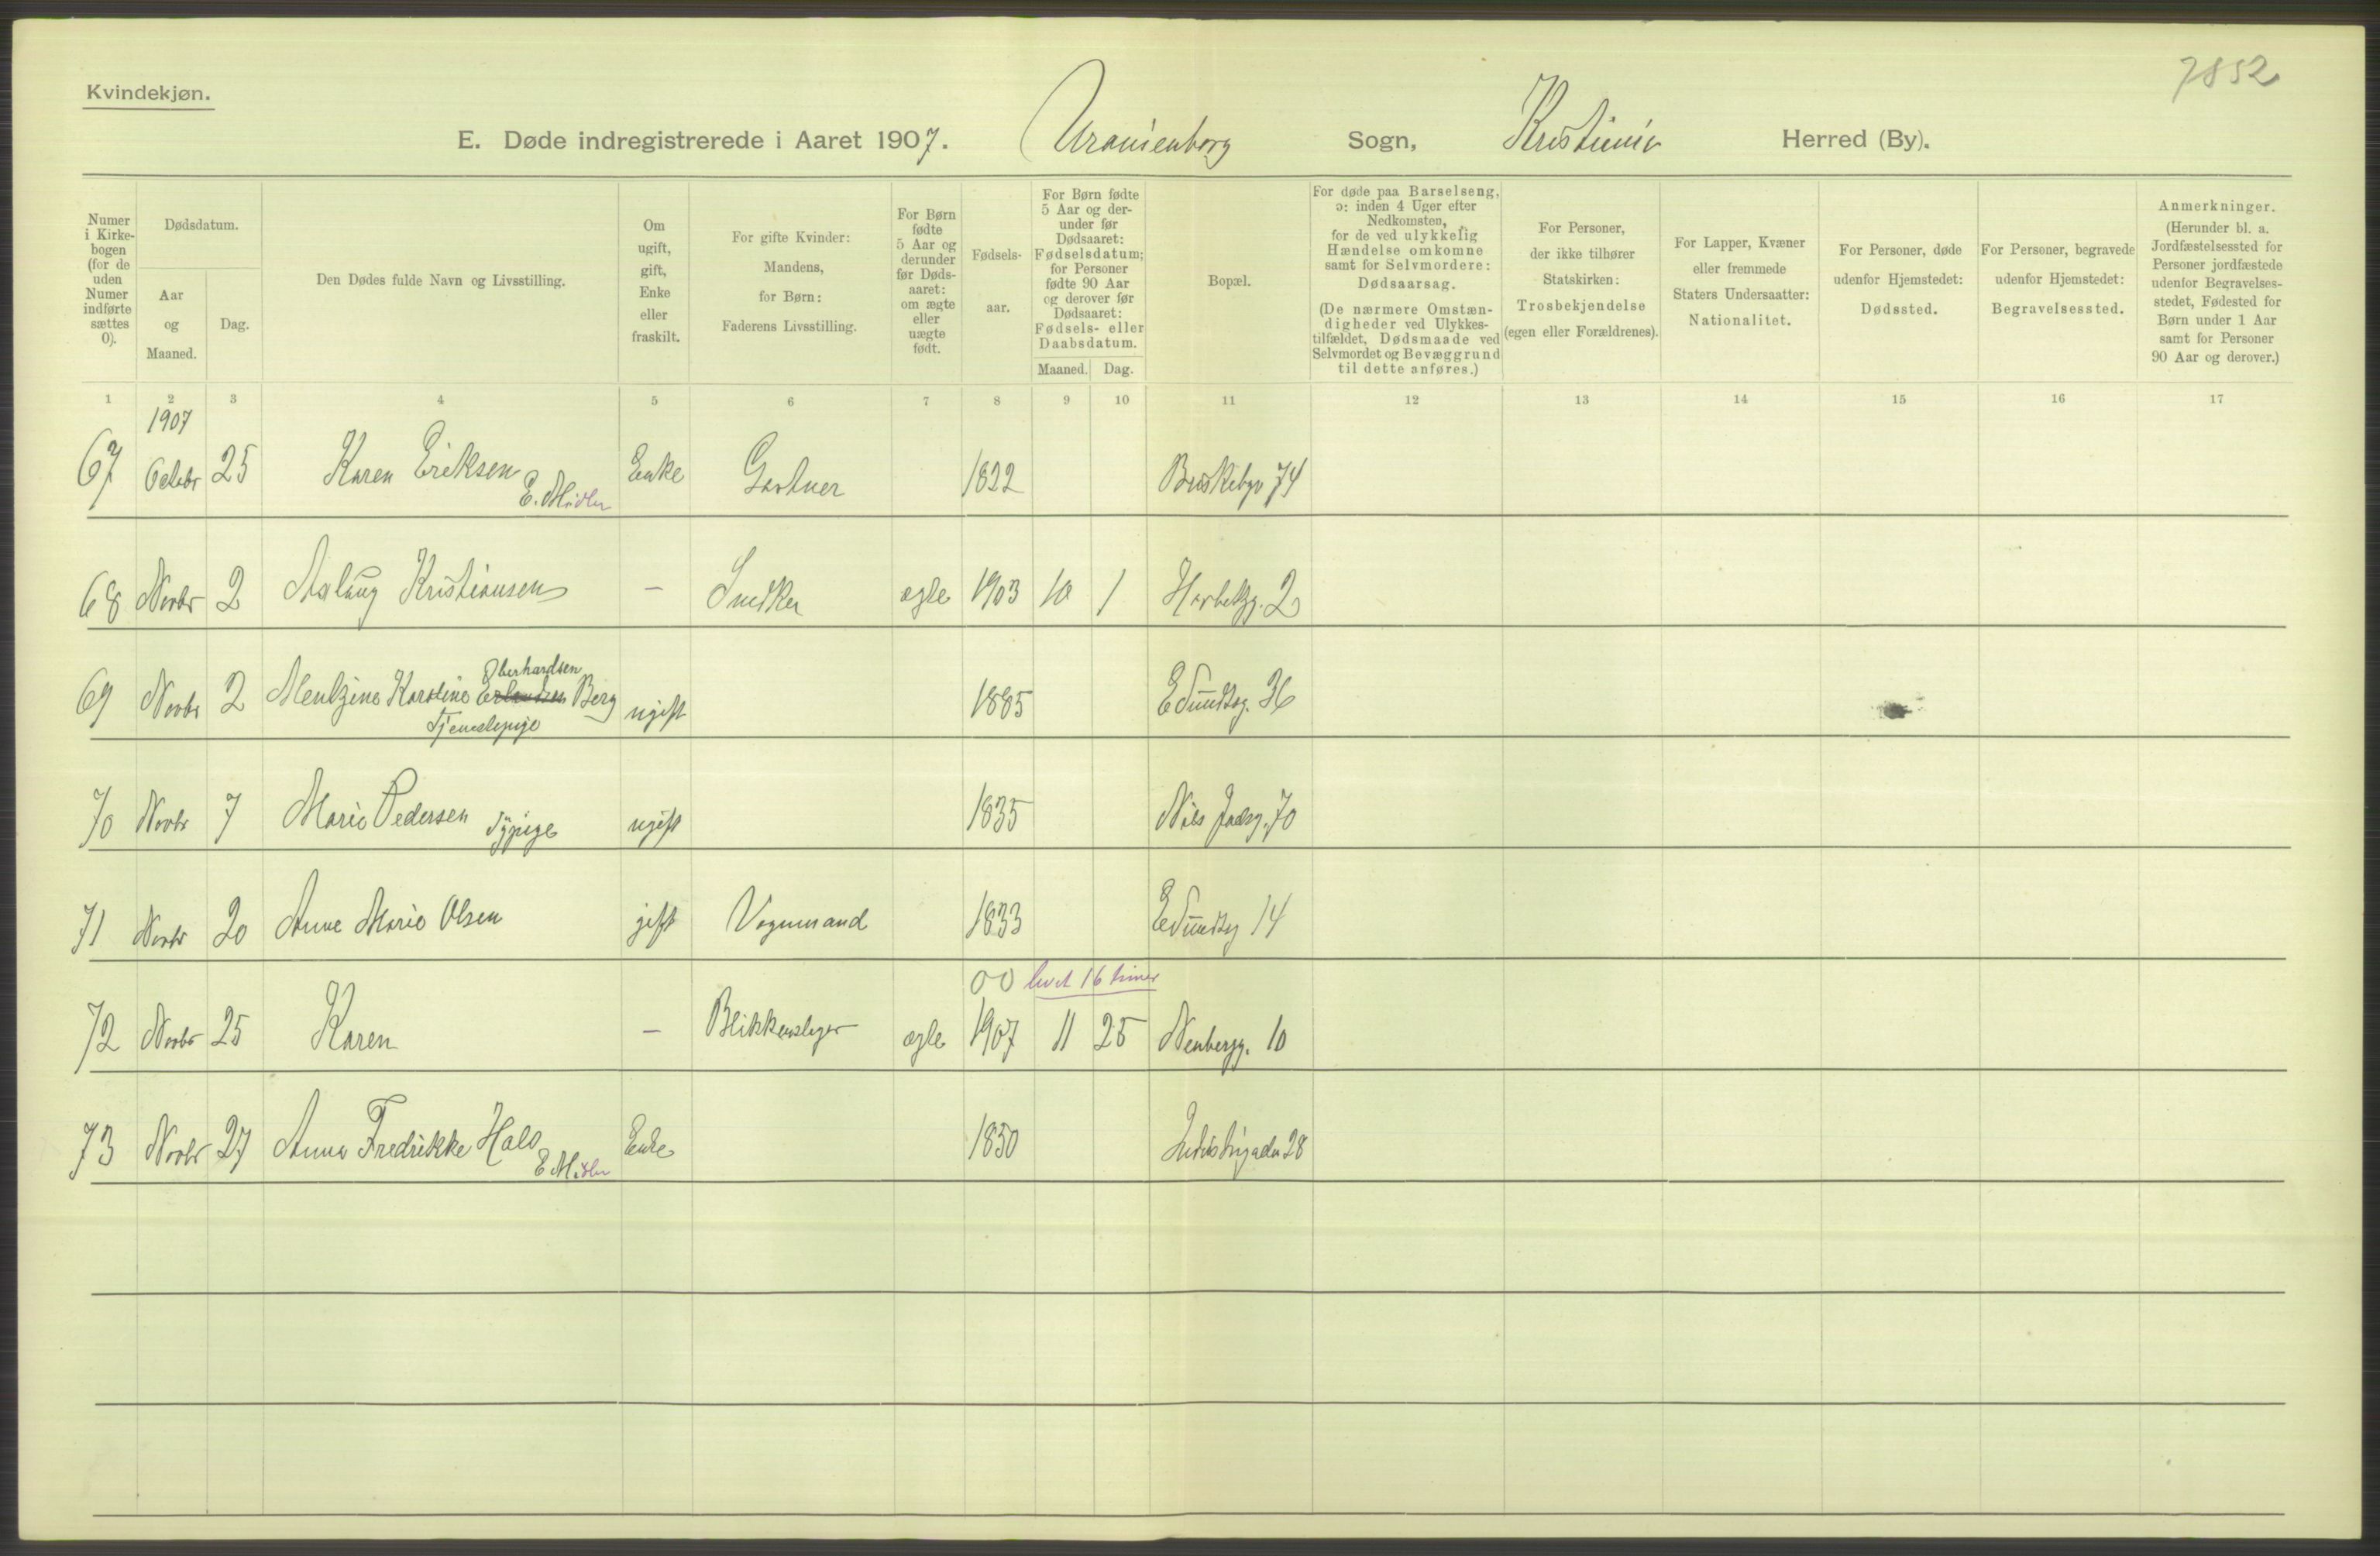 7852
Kvindekjøn.
E. Døde indregistrerede i Aaret 1907. Uranienborg Sogn, Kristiania Herred (By).
Numer i Kirke-bogen (for de uden Numer indførte sættes 0).
Dødsdatum.
Aar og Maaned.
Dag.
Den Dødes fulde Navn og Livsstilling.
Om ugift, gift, Enke eller fraskilt.
For gifte Kvinder: Mandens, for Børn: Faderens Livsstilling.
For Børn fødte 5 Aar og derunder før Døds-aaret: om ægte eller uægte født.
Fødsels-aar.
For Børn fødte 5 Aar og der-under før Dødsaaret: Fødselsdatum; for Personer fødte 90 Aar og derover før Dødsaaret: Fødsels- eller Daabsdatum.
Maaned. Dag.
Bopæl.
For døde paa Barselseng, ɔ: inden 4 Uger efter Nedkomsten, for de ved ulykkelig Hændelse omkomne samt for Selvmordere: Dødsaarsag. (De nærmere Omstæn-digheder ved Ulykkes-tilfældet, Dødsmaade ved Selvmordet og Bevæggrund til dette anføres.)
For Personer, der ikke tilhører Statskirken: Trosbekjendelse (egen eller Forældrenes).
For Lapper, Kvæner eller fremmede Staters Undersaatter: Nationalitet.
For Personer, døde udenfor Hjemstedet: Dødssted.
For Personer, begravede udenfor Hjemstedet: Begravelsessted.
Anmerkninger. (Herunder bl. a. Jordfæstelsessted for Personer jordfæstede udenfor Begravelses-stedet, Fødested for Børn under 1 Aar samt for Personer 90 Aar og derover.)
1 2 3 4 5 6 7 8 9 10 11 12 13 14 15 16 17
1907
67 Octobr 25 Karen Eriksen Enke Gartner 1822 Briskebyv 74
E. Midler
68 Novbr 2 Aslaug Kristiansen — Snedker ægte 1903 10 1 Harbitzg. 2
Eberhardsen
69 Novbr 2 Mentzine Karoline Berg ugift 1885 Eilundtsg. 36
Tjenestepige
70 Novbr 7 Marie Pedersen Sypige ugift 1835 Niels Juelsg. 70
71 Novbr 20 Anne Marie Olsen gift Vognmand 1833 Eilundtsg 14
00 levet 16 timer
72 Novbr 25 Karen — Blikkenslager ægte 1907 11 25 10
73 Novbr 27 Anna Fredrikke Hals Enke 1850 Industrigaden 28
E. Midler